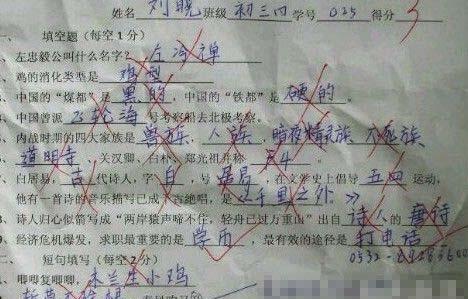 姓名 刘晓 班级 初三四 学号 025 得分 3
一、 填空题（每空 1 分）
、左忠毅公叫什么名字？ 左冷禅
、鸡的消化类型是 鸡型
、中国的“煤都”是 黑的 ，中国的“铁都”是 硬的 。
、中国曾派 法轮海 号考察船去北极考察。
、内战时期的四大家族是 兽族、人族、暗夜精灵族、不死族
、道明寺 、关汉卿、白朴、郑光祖并称 F4 。
、白居易， 吉 代诗人，字 白 ，号 居易 ，在文学史上倡导 五四 运动，
他有一首诗的音乐描写已成千古绝唱，是 《千里之外》 。
、诗人归心似箭写成“两岸猿声啼不住，轻舟已过万重山”出自 诗人 的 唐诗
、经济危机爆发，求职最重要的是 学历 ，最有效的途径是 打电话
二、 短句填写（每空 2 分） 0532-89265600
、唧唧复唧唧， 木兰生小鸡